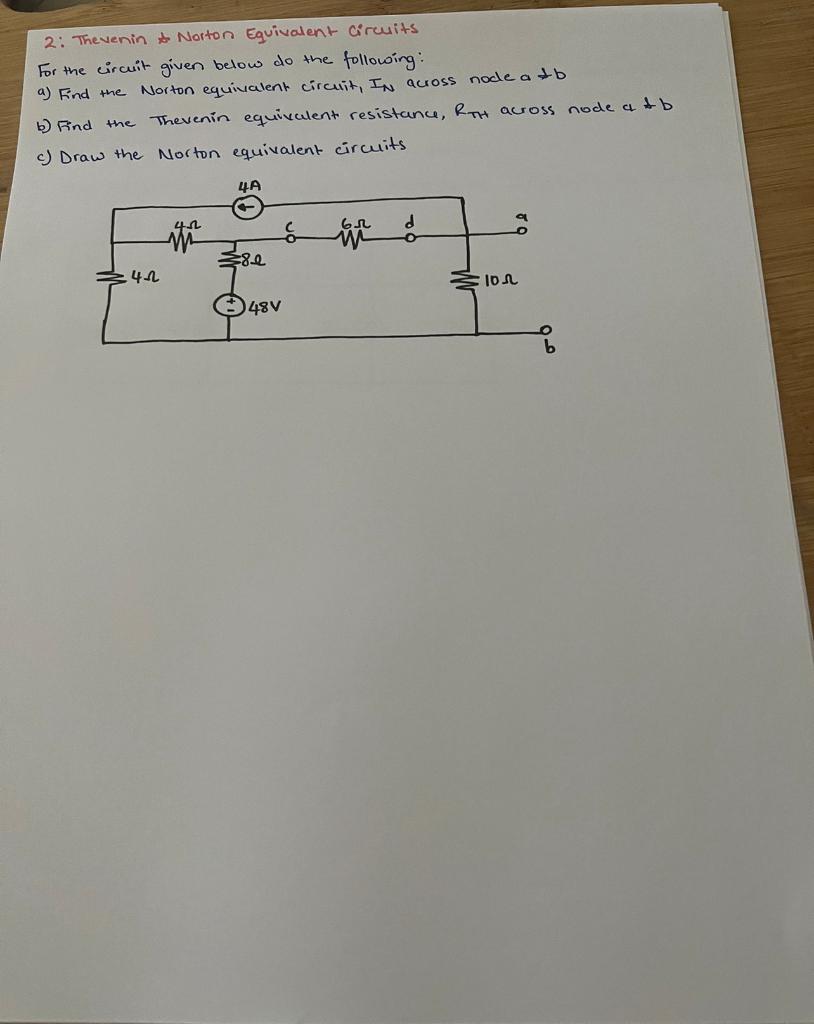 2: Thevenin & Norton Equivalent Circuits
For the circuit given below do the following:
a) Find the Norton equivalent circuit, IN across node a & b
b) Find the Thevenin equivalent resistance, RTH across node a & b
c) Draw the Norton equivalent circuits
4A
4Ω c 6Ω d a
8Ω
4Ω + - 48V 10Ω
b